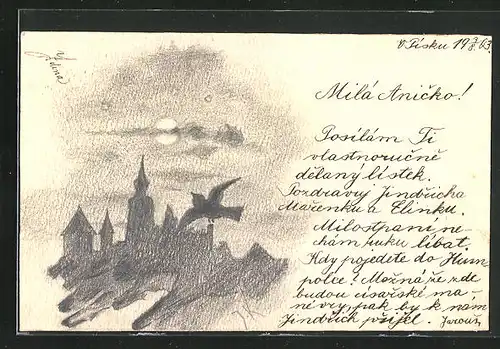 V Písku 19 3/8. 03.
Milá Aničko!
Posílám Ti
vlastnoručně
dělaný lístek.
Pozdravuj Jindřicha
Mařenku a Elinku.
Milostpaní ne-
chám ruku líbat.
Kdy pojedete do Hum
polce? Možná že zde
budou císařské ma-
névry, pak by k nám
Jindřich přijel. Jarouš.